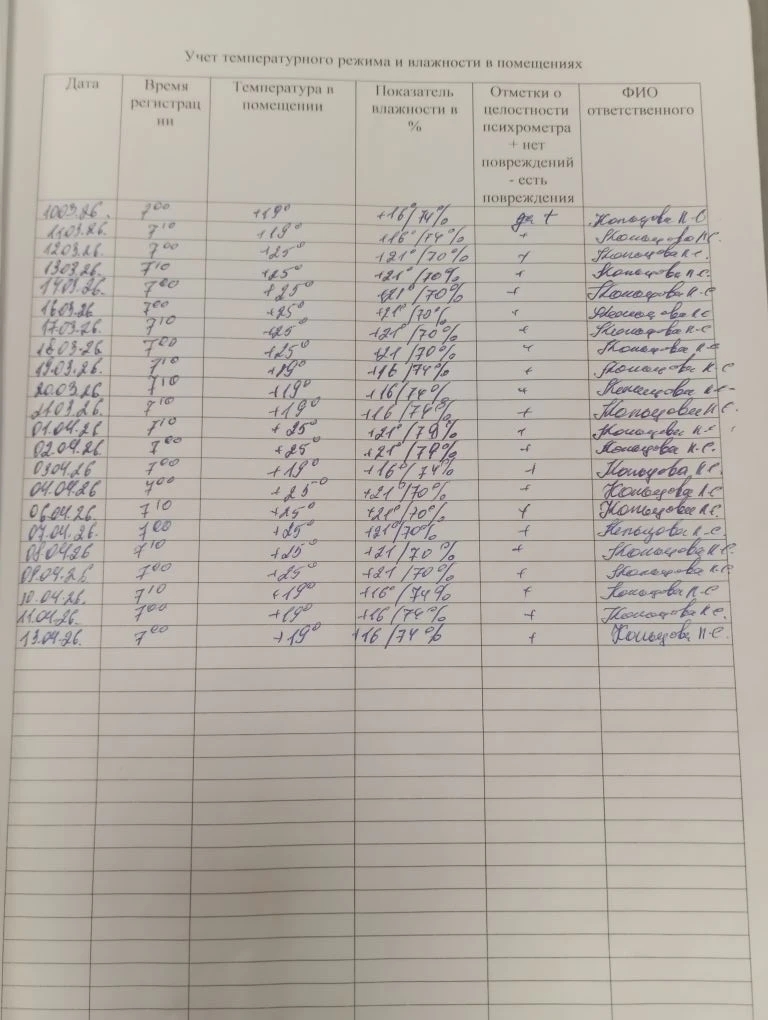 Учет температурного режима и влажности в помещениях
Дата Время регистрац ии Температура в помещении Показатель влажности в % Отметки о целостности психрометра + нет повреждений - есть повреждения ФИО ответственного
10.03.26. 7 00 +19° +16°/74% да + Копьцова Н.С
11.03.26. 7 10 +19° +16°/74% + Копьцова Н.С.
12.03.26. 7 00 +25° +21°/70% + Копьцова Н.С.
13.03.26. 7 10 +25° +21°/70% + Копьцова Н.С.
14.03.26. 7 00 +25° +21°/70% + Копьцова Н.С
16.03.26 7 00 +25° +21°/70% + Копьцова Н.С
17.03.26. 7 10 +25° +21°/70% + Копьцова Н.С
18.03.26. 7 00 +25° +21/70% + Копьцова Н.С
19.03.26. 7 10 +19° +16/74% + Копьцова Н.С
20.03.26 7 10 +19° +16/74% + Копьцова Н.С
21.03.26. 7 10 +19° +16/74% + Копьцова Н.С.
01.04.26 7 10 +25° +21°/79% + Копьцова Н.С
02.04.26. 7 00 +25° +21°/79% + Копьцова Н.С.
03.04.26 7 00 +19° +16°/74% + Копьцова Н.С.
04.04.26 7 00 +25° +21°/70% + Копьцова Н.С
06.04.26. 7 10 +25° +21°/70% + Копьцова Н.С.
07.04.26. 7 00 +25° +21°/70% + Копьцова Н.С.
08.04.26 7 10 +25° +21/70% + Копьцова Н.С.
09.04.26 7 00 +25° +21/70% + Копьцова Н.С
10.04.26. 7 10 +19° +16°/74% + Копьцова Н.С
11.04.26. 7 00 +19° +16/74% + Копьцова Н.С.
13.04.26. 7 00 +19° +16/74% + Копьцова Н.С.